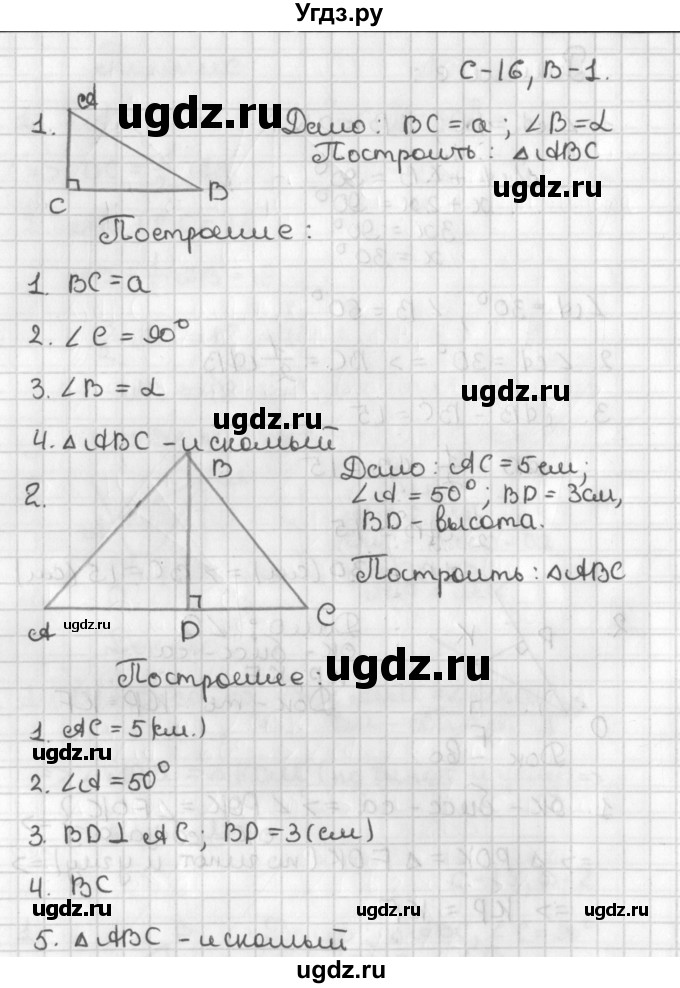 Угдз.ру
С-16, В-1.
A
1.
C
B
Дано: BC = a; ∠B = α
Построить: △ABC
Построение:
1. BC = a
2. ∠C = 90°
3. ∠B = α
4. △ABC - искомый
2.
B
A
D
C
Дано: AC = 5 см;
∠A = 50°; BD = 3 см,
BD - высота.
Построить: △ABC
Построение:
1. AC = 5 (см.)
2. ∠A = 50°
3. BD ⊥ AC; BD = 3 (см)
4. BC
5. △ABC - искомый
ugdz.ru
ugdz.ru
ugdz.ru
ugdz.ru
ugdz.ru
ugdz.ru
ugdz.ru
ugdz.ru
ugdz.ru
ugdz.ru
ugdz.ru